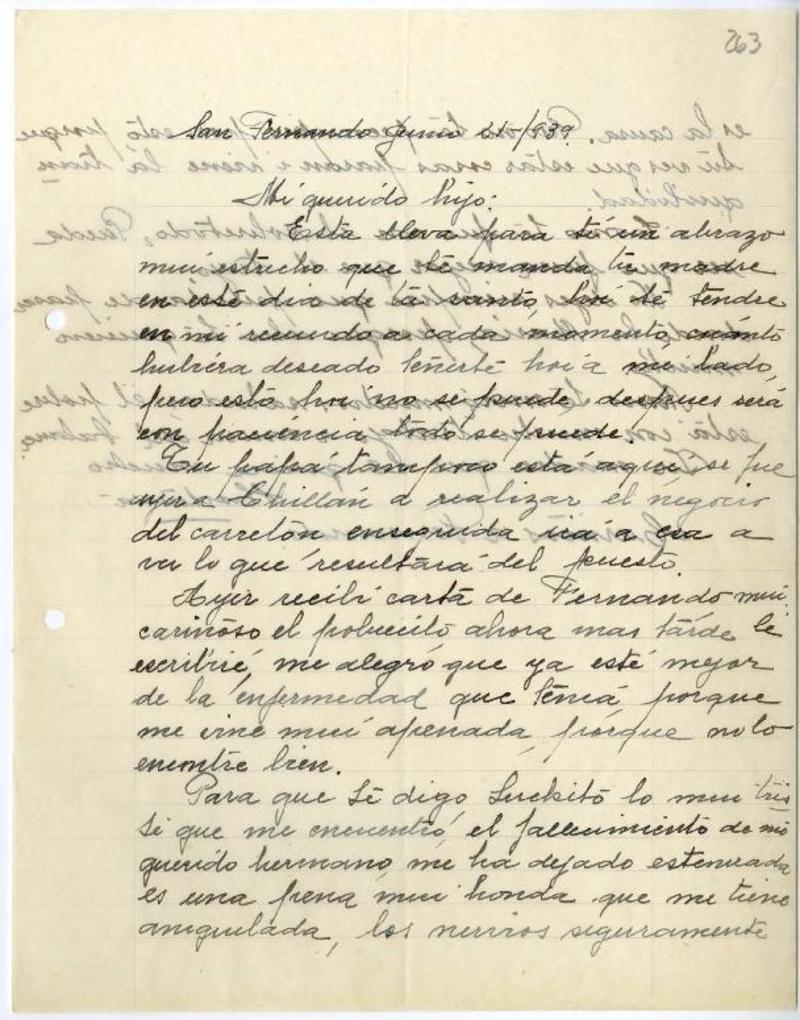 263
San Fernando Junio 21-/939.
Mi querido hijo:
Esta lleva para ti un abrazo
mui estrecho que te manda tu madre
en este dia de tu santo, hoi te tendre
en mi recuerdo a cada momento, cuánto
hubiera deseado tenerte hoi a mi lado,
pero esto hoi no se puede, despues será
con paciencia todo se puede.
Tu papá tampoco está aqui se fue
ayer a Chillán a realizar el negocio
del carretón enseguida irá a esa a
ver lo que resultara del puesto.
Ayer recibi carta de Fernando mui
cariñoso el pobrecito ahora mas tarde le
escribiré, me alegró que ya esté mejor
de la enfermedad que tenia, porque
me vine mui apenada, porque no lo
encontre bien.
Para que te digo, lo mui tris
te que me encuentro, el fallecimiento de mi
querido hermano, me ha dejado estenuada
es una pena mui honda que me tiene
aniquilada, los nervios seguramente